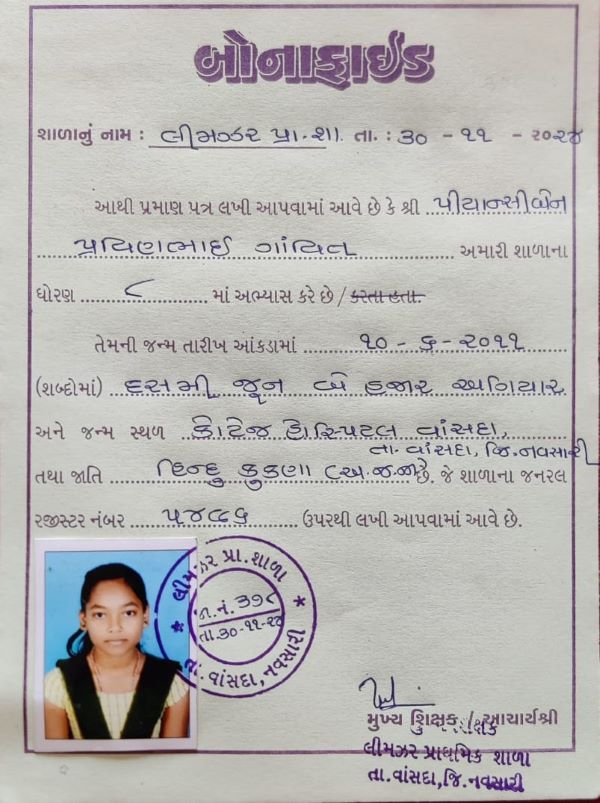 બોનાફાઈડ
શાળાનું નામ : લીમઝર પ્રા.શા. તા. : ૩૦ - ૧૧ - ૨૦૨૪
આથી પ્રમાણ પત્ર લખી આપવામાં આવે છે કે શ્રી પીયાન્સીબેન
પ્રવિણભાઈ ગાંવિત અમારી શાળાના
ધોરણ ૮ માં અભ્યાસ કરે છે / કરતા હતા.
તેમની જન્મ તારીખ આંકડામાં ૧૦ - ૬ - ૨૦૧૧
(શબ્દોમાં) દસમી જૂન બે હજાર અગિયાર
અને જન્મ સ્થળ કોટેજ હોસ્પિટલ વાંસદા,
તા. વાંસદા, જિ. નવસારી
તથા જાતિ હિન્દુ કુકણા (અ.જ.જા) છે. જે શાળાના જનરલ
રજીસ્ટર નંબર ૫૪૮૬ ઉપરથી લખી આપવામાં આવે છે.
લીમઝર પ્રા. શાળા
જા. નં. ૩૭૮
તા. ૩૦-૧૧-૨૪
તા. વાંસદા, નવસારી
મુખ્ય શિક્ષક / આચાર્યશ્રી
લીમઝર પ્રાથમિક શાળા
તા. વાંસદા, જિ. નવસારી